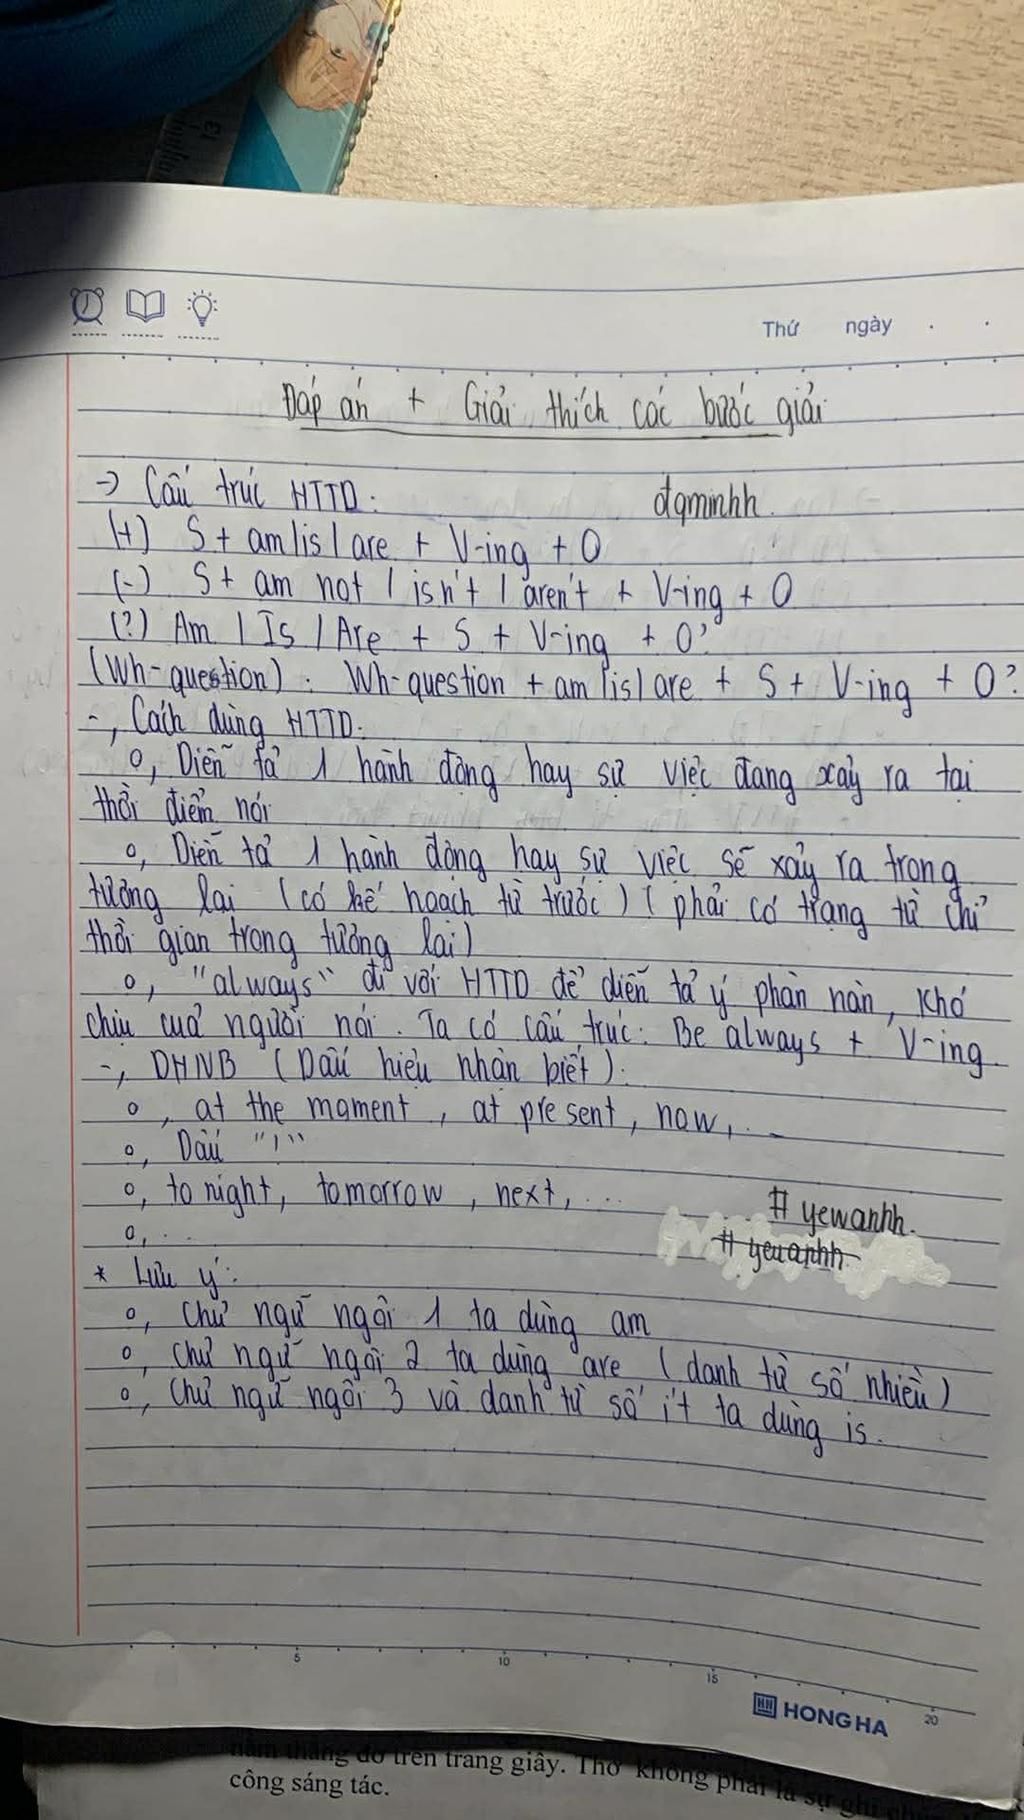 Thứ ngày . .
Đáp án + Giải thích các bước giải
-> Cấu trúc HTTD:
đqminhh.
(+) S + am/is/are + V-ing + O
(-) S + am not / isn't / aren't + V-ing + O
(?) Am / Is / Are + S + V-ing + O?
(Wh-question): Wh-question + am/is/are + S + V-ing + O?
-, Cách dùng HTTD:
o, Diễn tả 1 hành động hay sự việc đang xảy ra tại
thời điểm nói
o, Diễn tả 1 hành động hay sự việc sẽ xảy ra trong
tương lai (có kế hoạch từ trước) (phải có trạng từ chỉ
thời gian trong tương lai)
o, "always" đi với HTTD để diễn tả ý phàn nàn, khó
chịu của người nói. Ta có cấu trúc: Be always + V-ing
-, DHNB (Dấu hiệu nhận biết):
o, at the moment, at present, now,...
o, Dấu "!"
o, tonight, tomorrow, next,...
# yewanhh.
o,...
* Lưu ý:
o, chủ ngữ ngôi 1 ta dùng am
o, chủ ngữ ngôi 2 ta dùng are (danh từ số nhiều)
o, chủ ngữ ngôi 3 và danh từ số ít ta dùng is.
5 10 15 20
HH HONG HA
năm tháng đó trên trang giấy. Thơ không phải là sự ghi
công sáng tác.